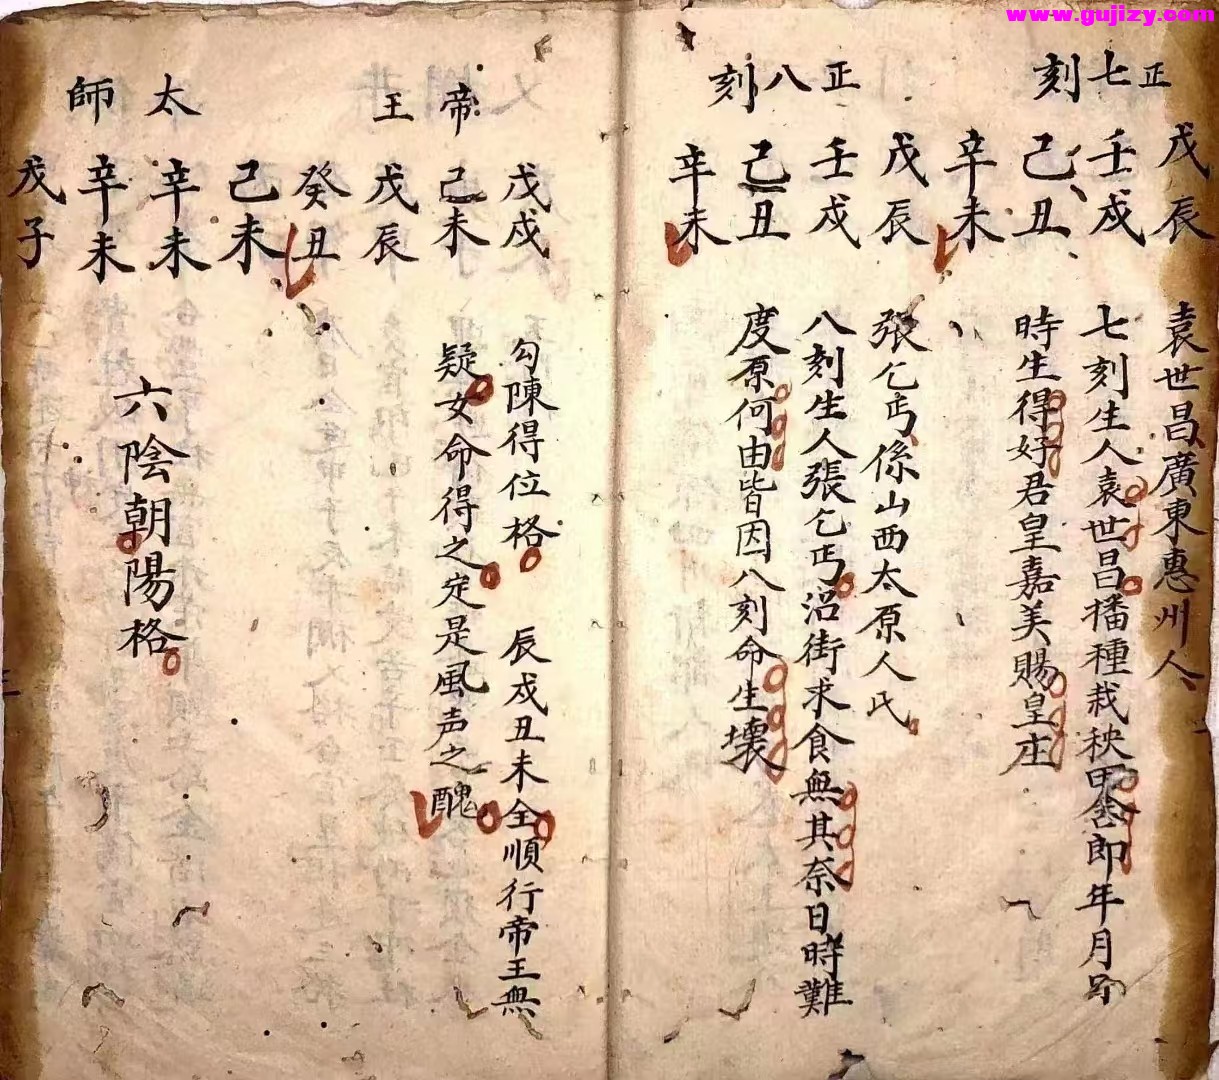 www.gujizy.com
正七刻
戊辰
壬戌
己丑
辛未
袁世昌廣東惠州人
七刻生人袁世昌播種栽秧田舍郎年月
時生得好君皇嘉美賜皇庄
正八刻
戊辰
壬戌
己丑
辛未
張乞丐係山西太原人氏
八刻生人張乞丐沿街求食無其奈日時難
度原何由皆因八刻命生壞
帝王
戊戌
己未
戊辰
癸丑
勾陳得位格 辰戌丑未全順行帝王無
疑女命得之定是風声之醜
太師
己未
辛未
辛未
戊子
六陰朝陽格
三